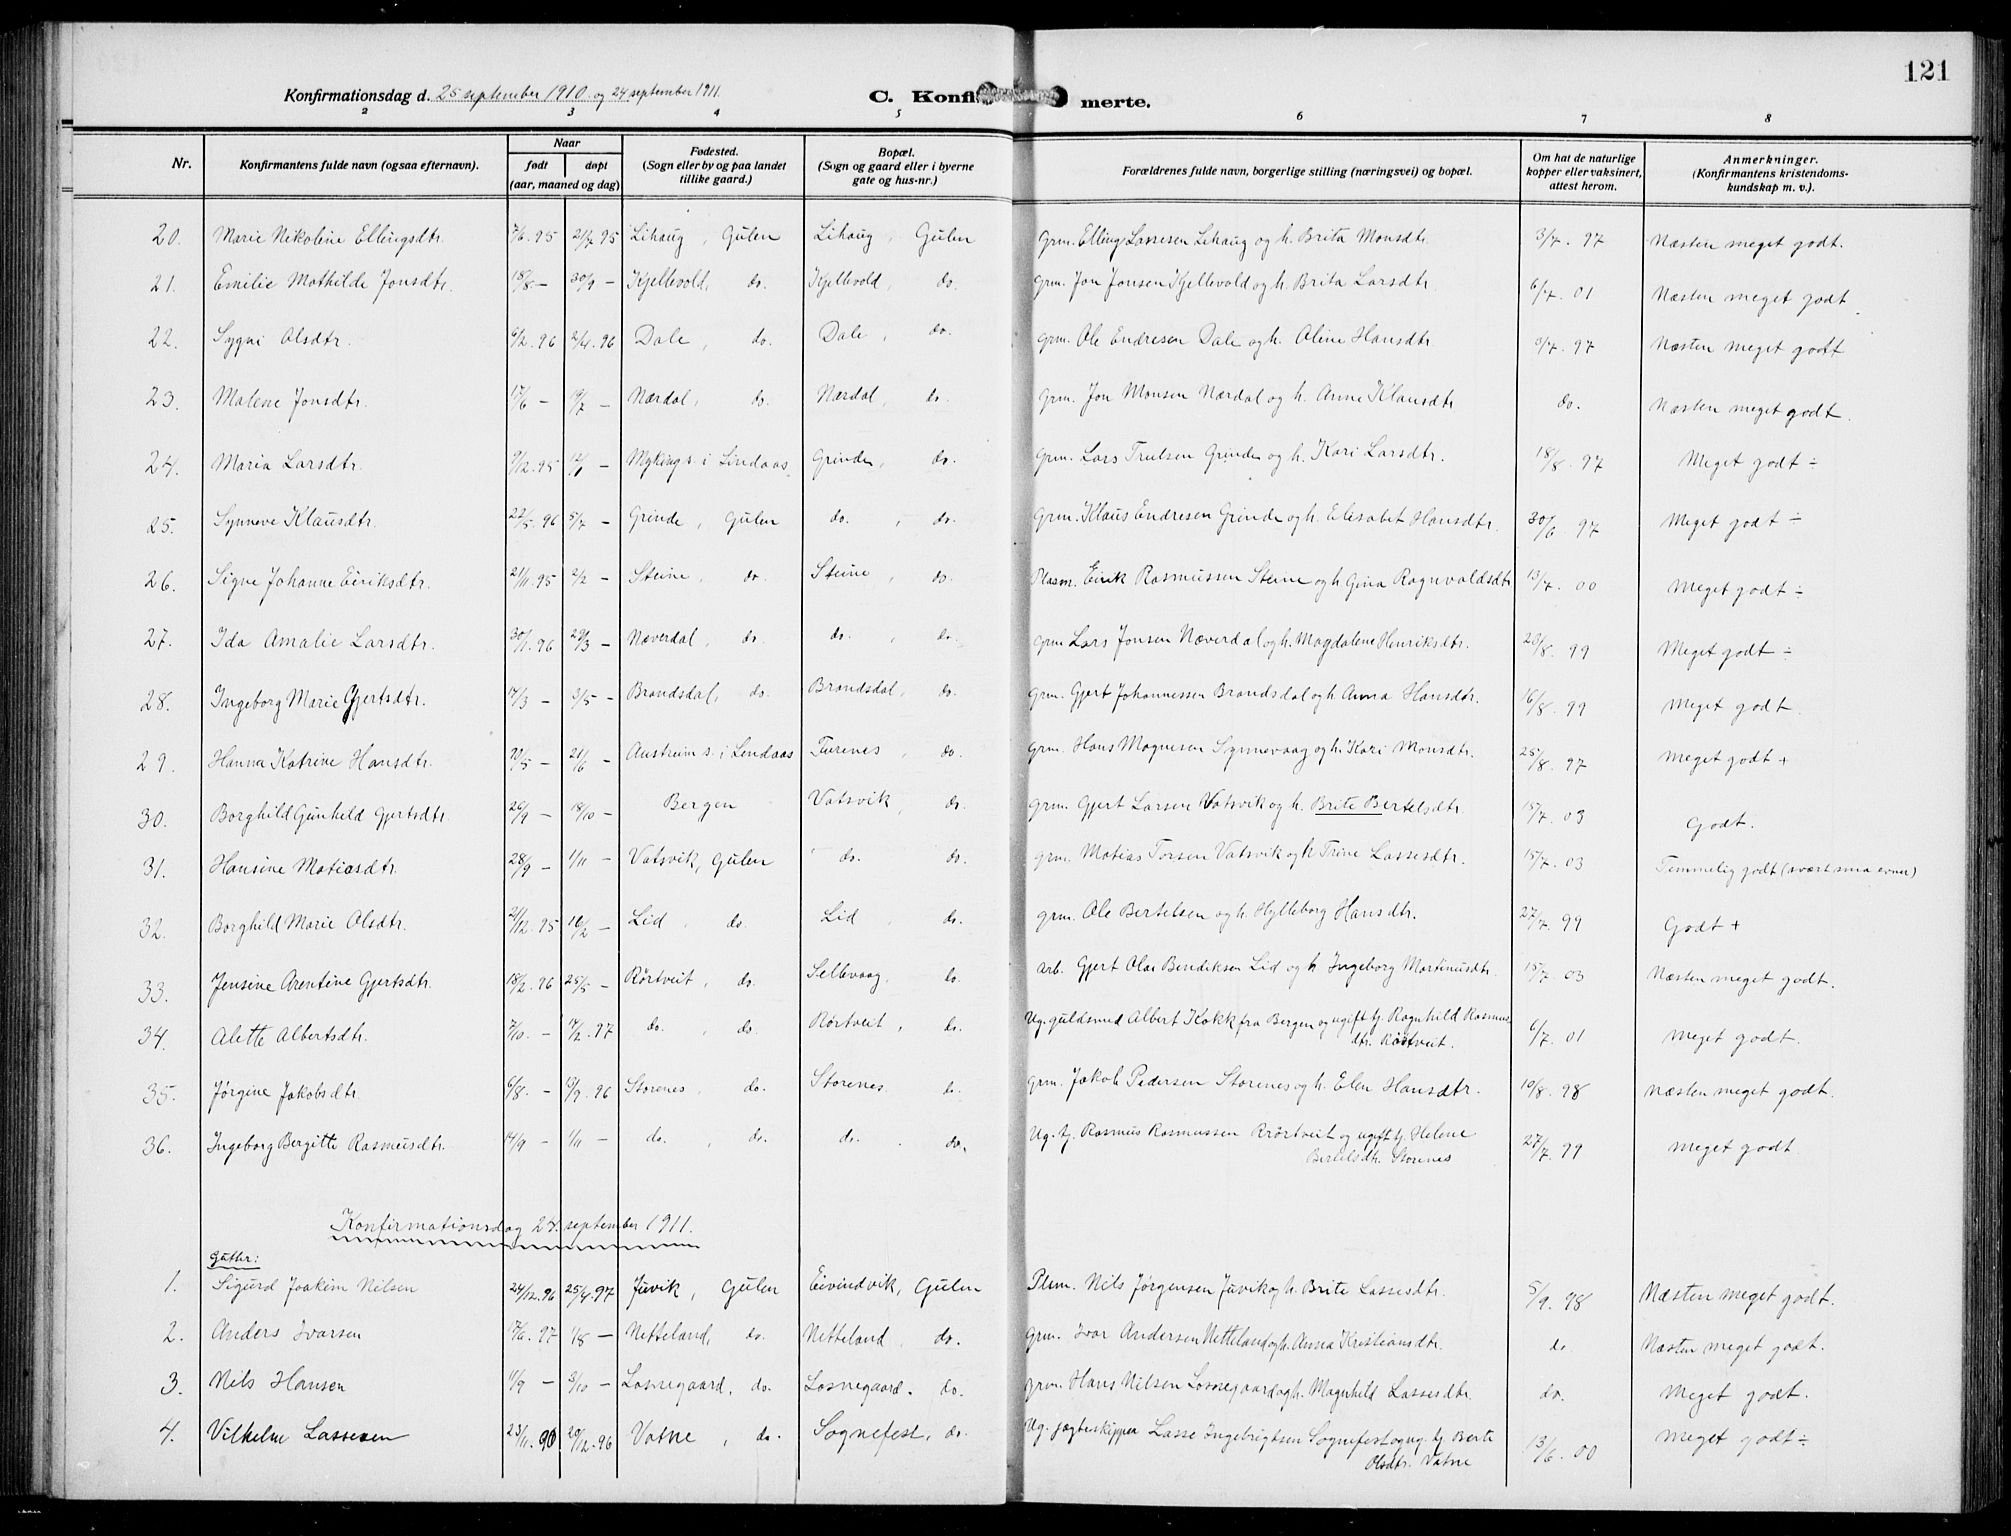 121
Konfirmationsdag d. 25 september 1910 og 24 september 1911. C. Konfi merte.
2 3 4 5 6 7 8
Nr. Konfirmantens fulde navn (ogsaa efternavn). Naar født døpt (aar, maaned og dag) Fødested. (Sogn eller by og paa landet tillike gaard.) Bopæl. (Sogn og gaard eller i byerne gate og hus-nr.) Forældrenes fulde navn, borgerlige stilling (næringsvei) og bopæl. Om hat de naturlige kopper eller vaksinert, attest herom. Anmerkninger. (Konfirmantens kristendomskundskap m. v.).
20. Marie Nikoline Ellingsdtr. 7/6. 95 21/7 95 Lihaug, Gulen Lihaug, Gulen Grm. Elling Lassesen Lihaug og h. Brita Monsdtr. 3/7. 97 Næsten meget godt.
21. Emilie Mathilde Jonsdtr. 18/8 – 30/9 – Kjellevold, do. Kjellevold, do. Grm. Jon Jonsen Kjellevold og h. Brita Larsdtr. 6/7. 01 Næsten meget godt.
22. Sygni Olsdtr. 6/2. 96 2/4. 96 Dale, do. Dale, do. Grm. Ole Endresen Dale og h. Oline Hansdtr. 97 Næsten meget godt
23. Malene Jonsdtr. 17/6 – 19/7 – Nærdal, do. Nærdal, do. Grm. Jon Monsen Nærdal og h. Anne Klausdtr do. Næsten meget godt.
24. Maria Larsdtr. 9/12. 95 12/1 – Myking s. i Lindaas Grinde, do. Grm. Lars Trulsen Grinde og h. Kari Larsdtr. 18/8. 97 Meget godt ÷
25. Synneve Klausdtr. 22/5. 96 5/7 – Grinde, Gulen do. , do. Grm. Klaus Endresen Grinde og h. Elisabet Hansdtr. 30/6 97 Meget godt ÷
26. Signe Johanne Eiriksdtr. 21/11. 95 2/2 – Steine, do. Steine, do. Plasm. Eirik Rasmussen Steine og h Gina Ragnvaldsdtr 13/7. 00 Meget godt ÷
27. Ida Amalie Larsdtr. 30/1. 96 29/3 – Næverdal, do. do. , do. Grm Lars Jonsen Næverdal og h. Magdalene Henriksdtr. 23/8. 99 Meget godt ÷
28. Ingeborg Marie Gjertsdtr. 17/3 – 3/5 – Brandsdal, do. Brandsdal, do. Grm. Gjert Johannessen Brandsdal og h. Anna Hansdtr. 16/8. 99 Meget godt.
29. Hanna Katrine Hansdtr. 21/5 – 21/6 – Austreim s. i Lindaas Furenes, do. Grm. Hans Magnesen Synnevaag og h. Kari Monsdtr. 25/8. 97 Meget godt +
30. Borghild Gunhild Gjertsdtr. 26/9 – 18/10 – Bergen Vatsvik, do. Grm. Gjert Larsen Vatsvik og h. Brite Bertelsdtr. 15/7. 03 Godt.
31. Hansine Matiasdtr. 28/9 – 1/11 – Vatsvik, Gulen do. do. Grm. Matias Torsen Vatsvik og h Trine Lassesdtr. 15/7. 03 Temmelig godt (svært smaa evner)
32. Borghild Marie Olsdtr. 21/12. 95 16/2 – Lid, do. Lid, do. Grm. Ole Bertelsen og h. Hylleborg Hansdtr. 27/7. 99 Godt +
33. Jensine Arentine Gjertsdtr. 18/2. 96 25/5 – Rørtveit, do. Sellevaag, do. Arb. Gjert Olai Bendiksen Lid og h. Ingeborg Martinusdtr. 15/7. 03 Næsten meget godt.
34. Alette Albertsdtr. 7/10. – 17/2. 97 do. , do. Rørtveit, do. Ug. guldsmed Albert Kokk fra Bergen og ugift tj. Ragnhild Rasmusdtr. Rørtveit. 6/7. 01 Meget godt.
35. Jørgine Jakobsdtr. 6/8. – 13/9. 96 Storenes, do. Storenes do. Grm. Jakob Pedersen Storenes og h. Elen Hansdtr. 10/8. 98 Næsten meget godt.
36. Ingeborg Bergitte Rasmusdtr. 14/9 – 1/11 – do. , do. do. , do. Ug. tj. Rasmus Rasmussen Rørtveit og ugift tj. Helene Bertelsdtr. Storenes 27/7. 99 Meget godt.
Konfirmationsdag 24. september 1911.
Gutter:
1. Sigurd Joakim Nilsen 24/12. 96 25/4. 97 Juvik, Gulen Eivindvik, Gulen Plsm. Nils Jørgensen Juvik og h. Brite Lassesdtr. 5/9. 98 Næsten meget godt.
2. Anders Ivarsen 17/6. 97 1/8 – Netteland, do. Netteland, do. Grm. Ivar Andersen Netteland og h. Anna Kristiansdtr. do Næsten meget godt.
3. Nils Hansen 11/9 – 3/10 – Losnegaard, do. Losnegaard. do. Grm. Hans Nilsen Losnegaard og h. Magnhild Lassesdtr. do. Meget godt.
4. Vilhelm Lassesen 23/11. 96 20/12. 96 Vatne, do. Sognefest, do. Ug. jagteskipper Lasse Ingebrigtsen Sognefest og ug. tj Berte Olsdtr. Vatne 13/6. 00 Meget godt ÷